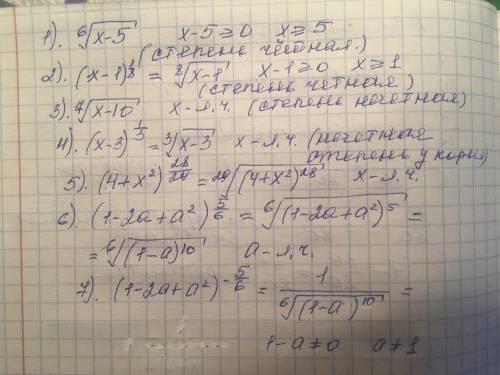 1). ⁶√(x-5)   x-5≥0   x≥5
(степень чётная.)
2). (x-1)^(1/8) = ⁸√(x-1)   x-1≥0   x≥1
(степень четная)
3). ⁷√(x-10)   x-л.ч. (степень нечетная)
4). (x-3)^(1/3) = ³√(x-3)   x-л.ч. (нечетная
степень у корня)
5). (4+x²)^(28/20) = ²⁰√((4+x²)²⁸)   x-л.ч.
6). (1-2a+a²)^(5/6) = ⁶√((1-2a+a²)⁵) =
= ⁶√((1-a)¹⁰)   a-л.ч.
7). (1-2a+a²)^(-5/6) = 1/⁶√((1-a)¹⁰) =
1-a≠0   a≠1